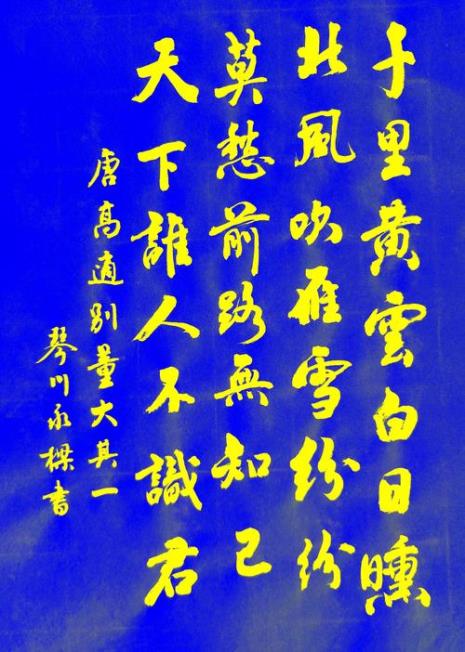 千里黄雲白日曛
北風吹雁雪紛紛
莫愁前路無知己
天下誰人不識君
唐高適別董大其一
琴川永樑書